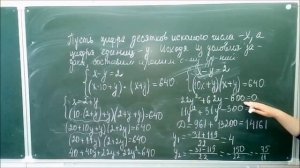 Пусть цифра десятков искомого числа - x, а
цифра единиц - y. Исходя из условия за-
дачи, составим
x-y=2
(x·10+y)·(x+y)=640
x=2+y
(10·(2+y)+y)(2+y+y)=640
(20+11y)(2+2y)=640
40+40y+22y+22y²=640
x-y=2
(10x+y)(x+y)=640
22y²+62y-600=0
11y²+31y-300=0
D=961+13200=14161